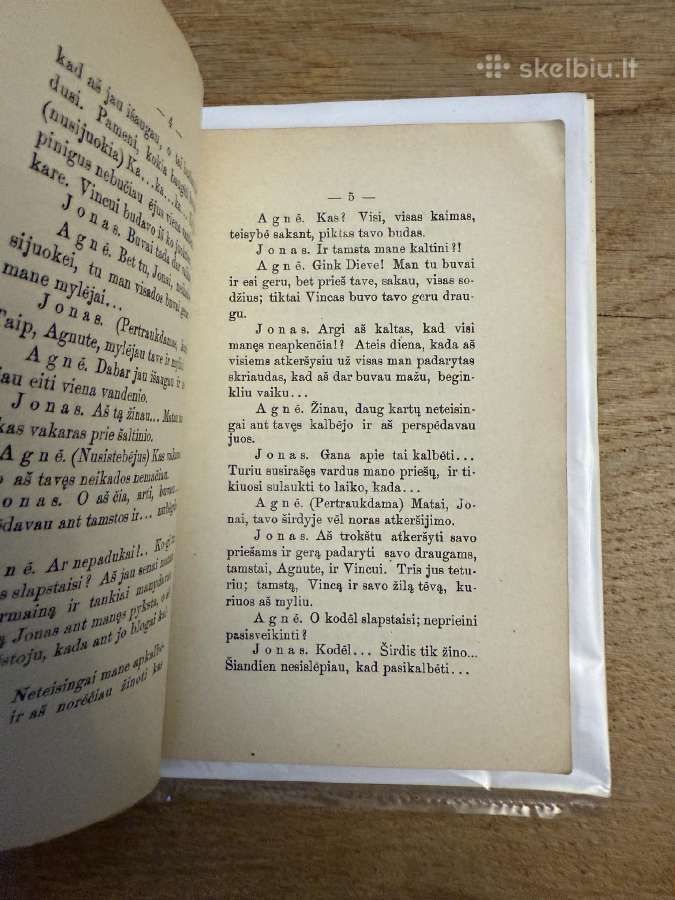 skelbiu.lt
— 4 —
kad aš jau išaugau, o tai
dusi. Pameni, kokia
(nusijuokia) Ka...ka...ka...
pinigus nebučiau ėjus viena
kare. Vincui budavo iš ko
Jonas. Buvai tada dar
Agnė. Bet tu, Jonai,
sijuokei, tu man visados buvai
mane mylėjai...
Jonas. (Pertraukdamas,
Taip, Agnute, mylėjau tave ir
Agnė. Dabar jau išaugau ir
jau eiti viena vandenio.
Jonas. Aš tą žinau... Matai
kas vakaras prie šaltinio.
Agnė. (Nusistebėjus) Kas
o aš tavęs neikados nemačiau.
Jonas. O aš čia, arti,
pėdavau ant tamstos ir...
Agnė. Ar nepadukai!..
s slapstaisi? Aš jau senai
ir tankiai
ą Jonas ant manęs pyksta, o
stoju, kada ant jo blogai
Neteisingai mane
ir aš norėčiau žinoti
— 5 —
Agnė. Kas? Visi, visas kaimas,
teisybė sakant, piktas tavo budas.
Jonas. Ir tamsta mane kaltini?!
Agnė. Gink Dieve! Man tu buvai
ir esi geru, bet prieš tave, sakau, visas so-
džius; tiktai Vincas buvo tavo geru drau-
gu.
Jonas. Argi aš kaltas, kad visi
manęs neapkenčia!? Ateis diena, kada aš
visiems atkeršysiu už visas man padarytas
skriaudas, kad aš dar buvau mažu, begin-
kliu vaiku...
Agnė. Žinau, daug kartų neteisin-
gai ant tavęs kalbėjo ir aš perspėdavau
juos.
Jonas. Gana apie tai kalbėti...
Turiu susirašęs vardus mano priešų, ir ti-
kiuosi sulaukti to laiko, kada...
Agnė. (Pertraukdama) Matai, Jo-
nai, tavo širdyje vėl noras atkeršijimo.
Jonas. Aš trokštu atkeršyti savo
priešams ir gerą padaryti savo draugams,
tamstai, Agnute, ir Vincui. Tris jus tetu-
riu; tamstą, Vincą ir savo žilą tėvą, ku-
riuos aš myliu.
Agnė. O kodėl slapstaisi; neprieini
pasisveikinti?
Jonas. Kodėl... Širdis tik žino...
Šiandien nesislėpiau, kad pasikalbėti...